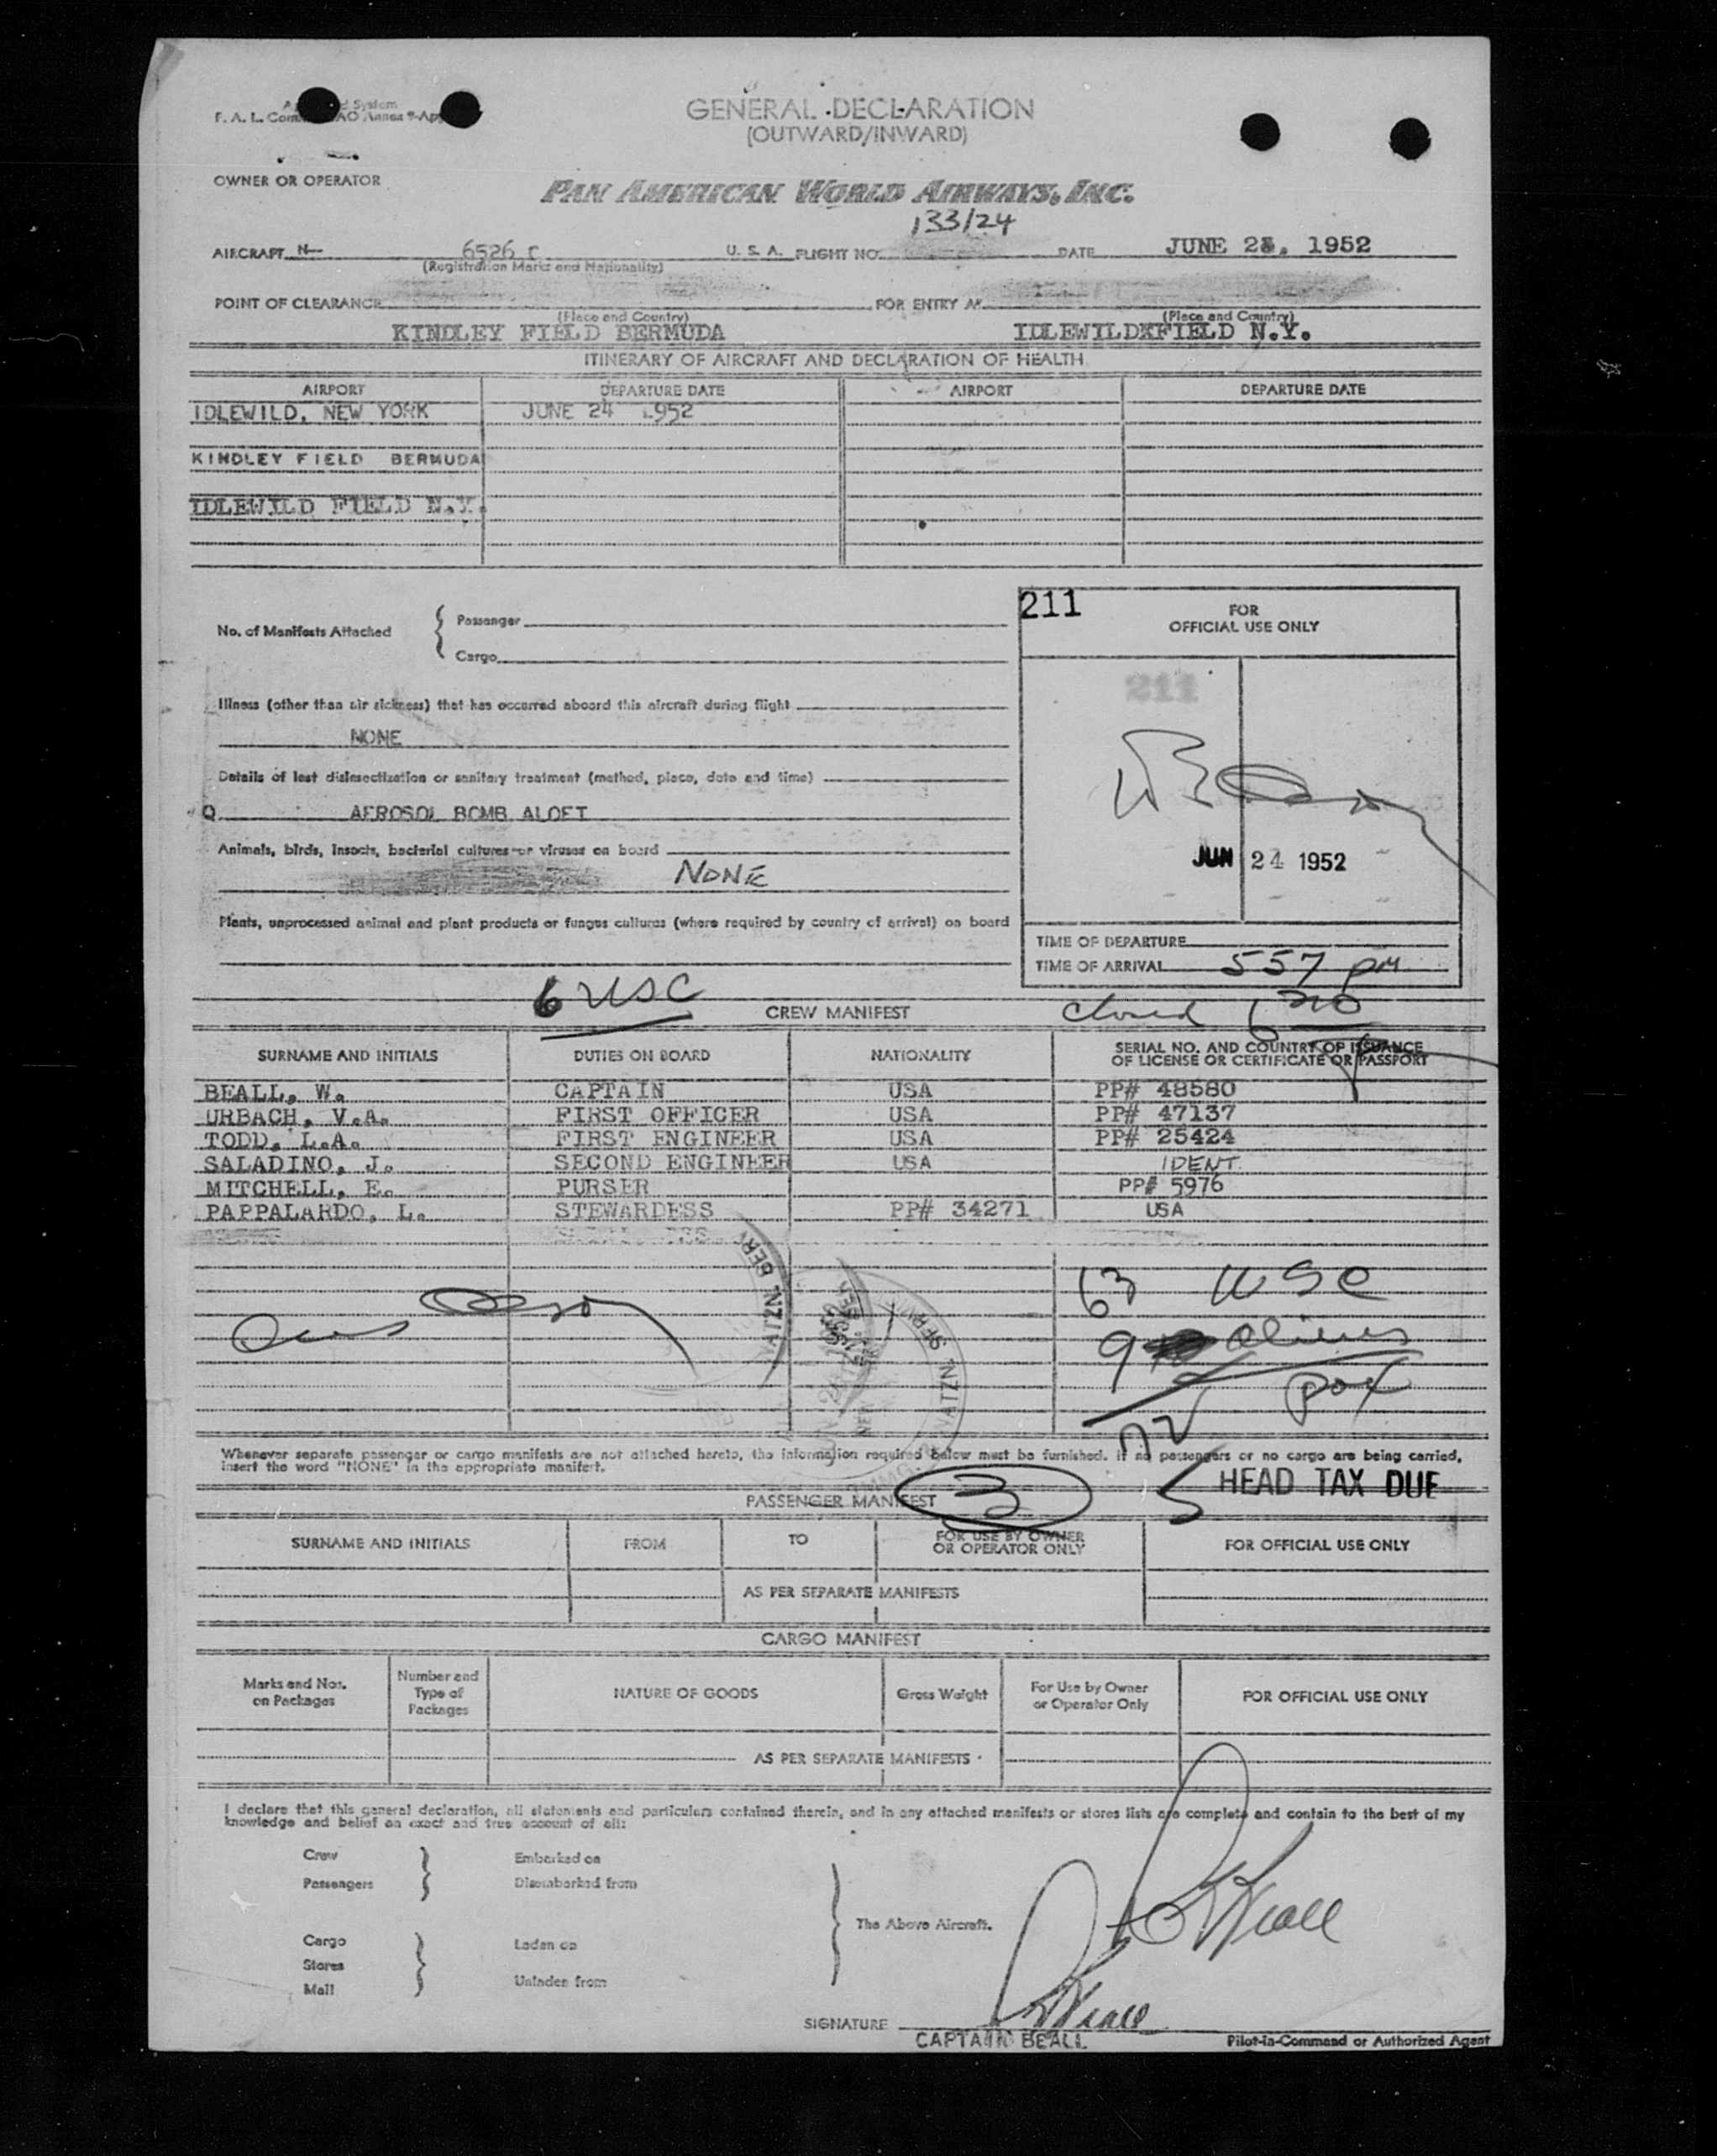 F. A. L.
GENERAL DECLARATION
(OUTWARD/INWARD)
OWNER OR OPERATOR
PAN AMERICAN WORLD AIRWAYS, INC.
133/24
AIRCRAFT N- 6526 C U. S. A. FLIGHT NO. DATE JUNE 24, 1952
(Registration Marks and Nationality)
POINT OF CLEARANCE FOR ENTRY AT
(Place and Country) (Place and Country)
KINDLEY FIELD BERMUDA IDLEWILDXFIELD N.Y.
ITINERARY OF AIRCRAFT AND DECLARATION OF HEALTH
AIRPORT DEPARTURE DATE AIRPORT DEPARTURE DATE
IDLEWILD, NEW YORK JUNE 24 1952
KINDLEY FIELD BERMUDA
IDLEWILD FIELD N.Y.
211 FOR
OFFICIAL USE ONLY
No. of Manifests Attached { Passenger
Cargo
211
Illness (other than air sickness) that has occurred aboard this aircraft during flight
NONE
Details of last disinsectization or sanitary treatment (method, place, date and time)
Q AEROSOL BOMB ALOFT
Animals, birds, insects, bacterial cultures or viruses on board
NONE
JUN 24 1952
Plants, unprocessed animal and plant products or fungus cultures (where required by country of arrival) on board
TIME OF DEPARTURE
TIME OF ARRIVAL 557 PM
6 USC
CREW MANIFEST
closed 6 20
SURNAME AND INITIALS DUTIES ON BOARD NATIONALITY SERIAL NO. AND COUNTRY OF ISSUANCE
OF LICENSE OR CERTIFICATE OR PASSPORT
BEALL, W. CAPTAIN USA PP# 48580
URBACH, V.A. FIRST OFFICER USA PP# 47137
TODD, L.A. FIRST ENGINEER USA PP# 25424
SALADINO, J. SECOND ENGINEER USA IDENT
MITCHELL, E. PURSER PP# 5976
PAPPALARDO, L. STEWARDESS PP# 34271 USA
63 USC
9 aliens
72 pax
Whenever separate passenger or cargo manifests are not attached hereto, the information required below must be furnished. If no passengers or no cargo are being carried,
insert the word "NONE" in the appropriate manifest.
5 HEAD TAX DUE
PASSENGER MANIFEST 3
SURNAME AND INITIALS FROM TO FOR USE BY OWNER
OR OPERATOR ONLY FOR OFFICIAL USE ONLY
AS PER SEPARATE MANIFESTS
CARGO MANIFEST
Marks and Nos.
on Packages Number and
Type of
Packages NATURE OF GOODS Gross Weight For Use by Owner
or Operator Only FOR OFFICIAL USE ONLY
AS PER SEPARATE MANIFESTS
I declare that this general declaration, all statements and particulars contained therein, and in any attached manifests or stores lists are complete and contain to the best of my
knowledge and belief an exact and true account of all:
Crew Embarked on
Passengers Disembarked from
The Above Aircraft.
Cargo Laden on
Stores
Mail Unladen from
SIGNATURE
CAPTAIN BEALL Pilot-in-Command or Authorized Agent